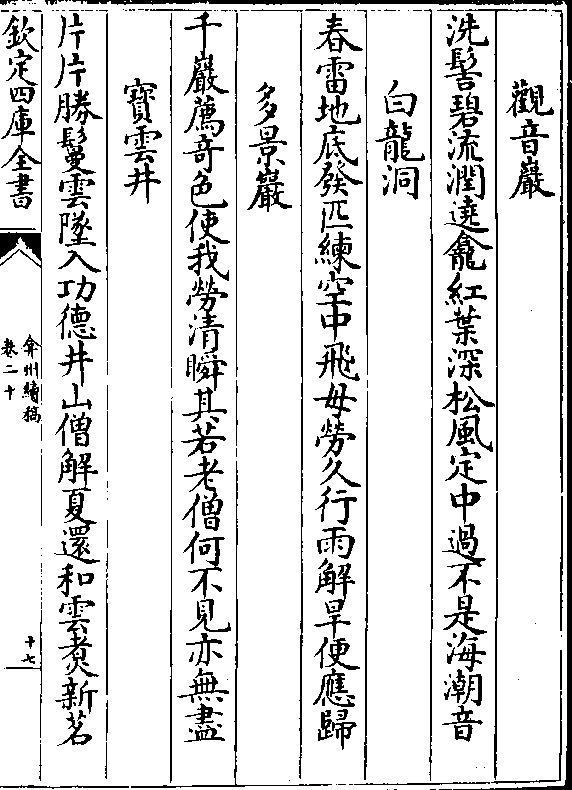 觀音巖
洗髻碧流潤遶龕紅葉深松風定中過不是海潮音
白龍洞
春雷地底發匹練空中飛毋勞久行雨解旱便應歸
多景巖
千巖薦奇色使我勞清瞬其若老僧何不見亦無盡
寶雲井
片片勝鬘雲墜入功德井山僧解夏還和雲煮新茗
欽定四庫全書
弇州續稿
卷二十
十七